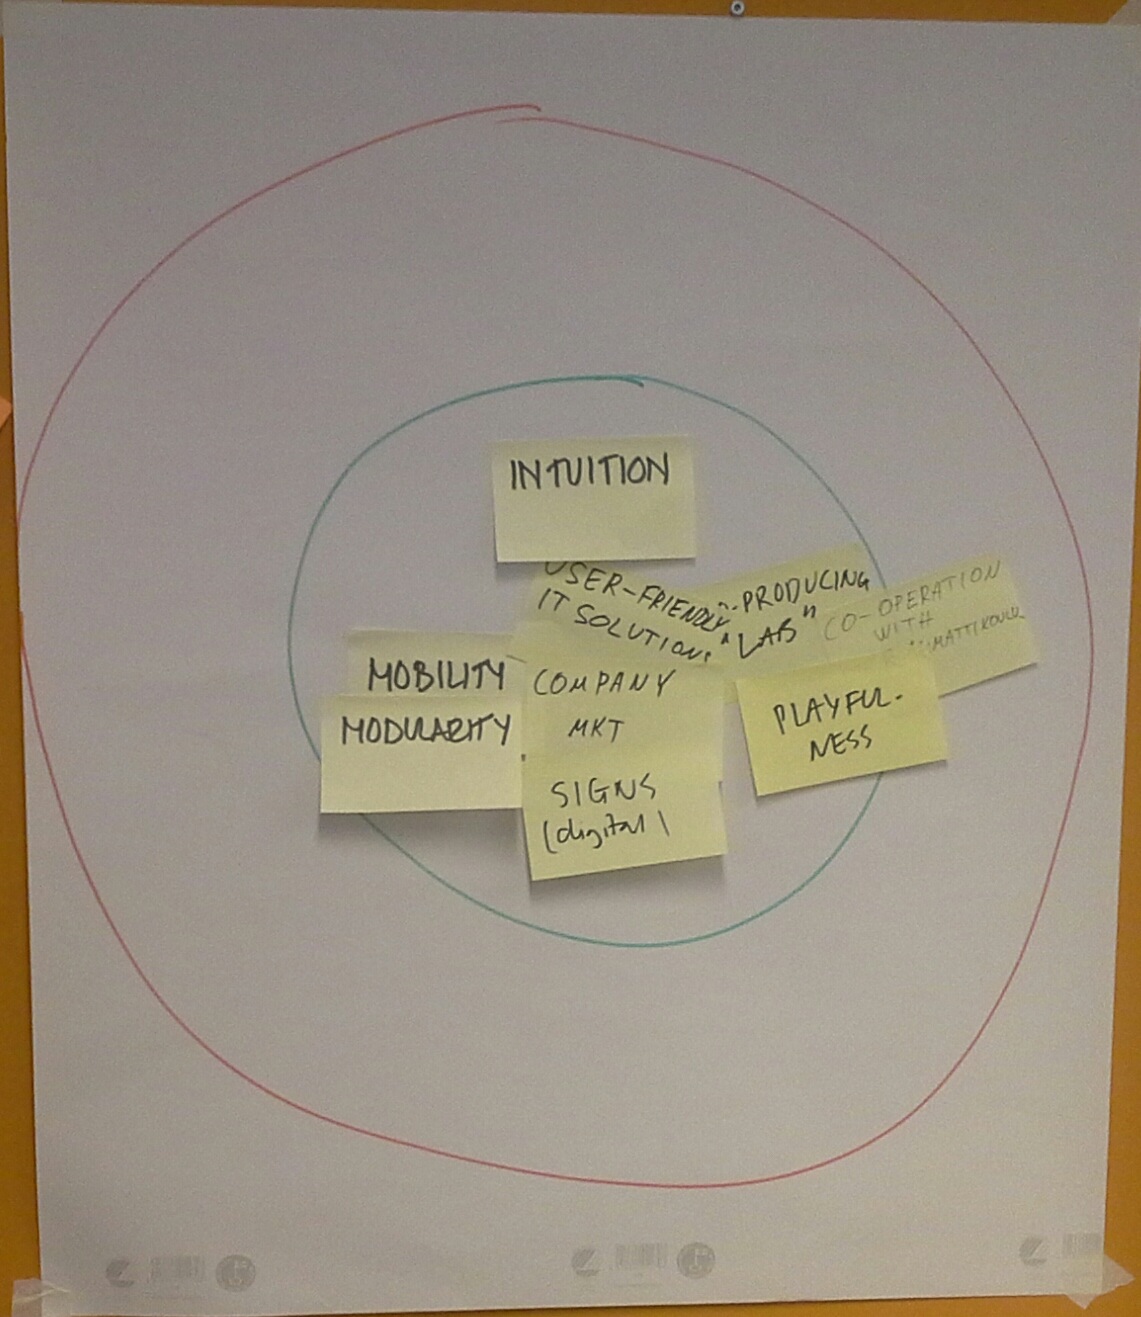 INTUITION
USER-FRIENDLY
IT SOLUTIONS
-PRODUCING
"LAB"
CO-OPERATION
WITH
MOBILITY
MODULARITY
COMPANY
MKT
SIGNS
(digital)
PLAYFUL-
NESS